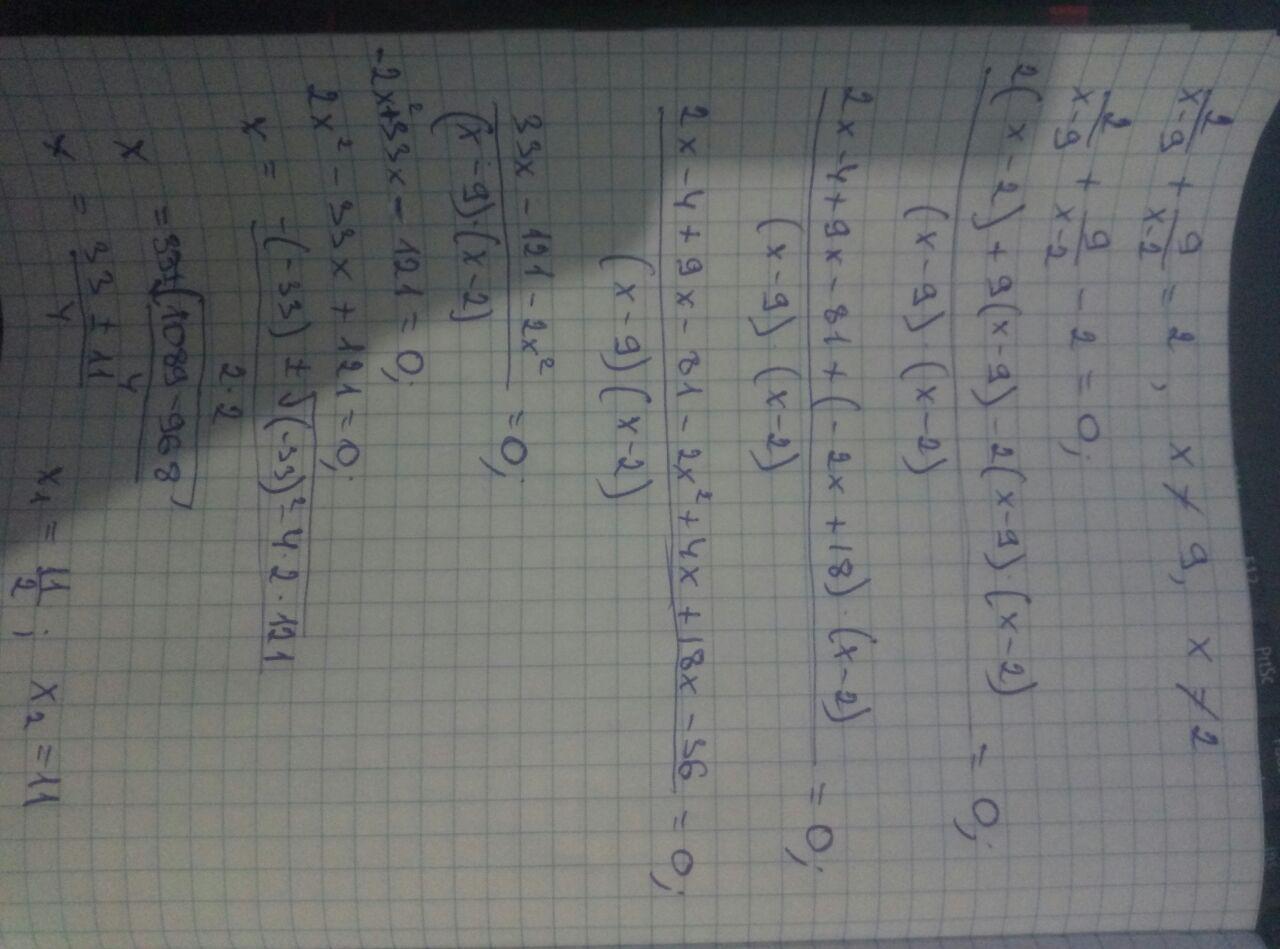 2/(x-9) + 9/(x-2) = 2, x ≠ 9, x ≠ 2
2/(x-9) + 9/(x-2) - 2 = 0;
(2(x-2) + 9(x-9) - 2(x-9)·(x-2))/((x-9)·(x-2)) = 0;
(2x-4+9x-81+(-2x+18)·(x-2))/((x-9)·(x-2)) = 0;
(2x-4+9x-81-2x²+4x+18x-36)/((x-9)(x-2)) = 0;
(33x-121-2x²)/((x-9)·(x-2)) = 0;
-2x²+33x-121=0;
2x²-33x+121=0;
x = (-(-33) ± √((-33)²-4·2·121))/(2·2)
x = (33±√(1089-968))/4
x = (33 ± 11)/4 x₁ = 11/2; x₂ = 11